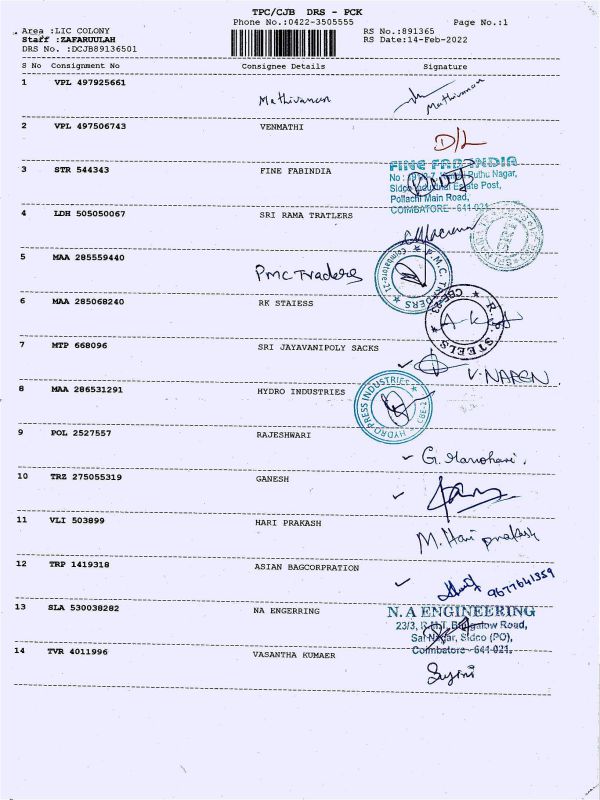 TPC/CJB DRS - PCK
Phone No.:0422-3505555 Page No.:1
Area :LIC COLONY RS No.:891365
Staff :ZAFARUULAH RS Date:14-Feb-2022
DRS No. :DCJB89136501
S No Consignment No Consignee Details Signature
1 VPL 497925661 Mathivanan Mathivanan
2 VPL 497506743 VENMATHI D/L
3 STR 544343 FINE FABINDIA
FINE FABINDIA
Ruthu Nagar,
Sidco Industrial Estate Post,
Pollachi Main Road,
COIMBATORE - 641 021
4 LDH 505050067 SRI RAMA TRATLERS
5 MAA 285559440 PMC Traders
P.M.C. TRADERS Coimbatore-21
6 MAA 285068240 RK STAIESS
STEELS CBE-23
7 MTP 668096 SRI JAYAVANIPOLY SACKS V. NAREN
8 MAA 286531291 HYDRO INDUSTRIES
HYDRO PRESS INDUSTRIES CBE-2
9 POL 2527557 RAJESHWARI G. Manohari.
10 TRZ 275055319 GANESH
11 VLI 503899 HARI PRAKASH M. Hari prakash
12 TRP 1419318 ASIAN BAGCORPRATION 9677641359
13 SLA 530038282 NA ENGERRING
N.A ENGINEERING
23/3, Bungalow Road,
Sai Nagar, Sidco (PO),
Coimbatore - 641 021.
14 TVR 4011996 VASANTHA KUMAER